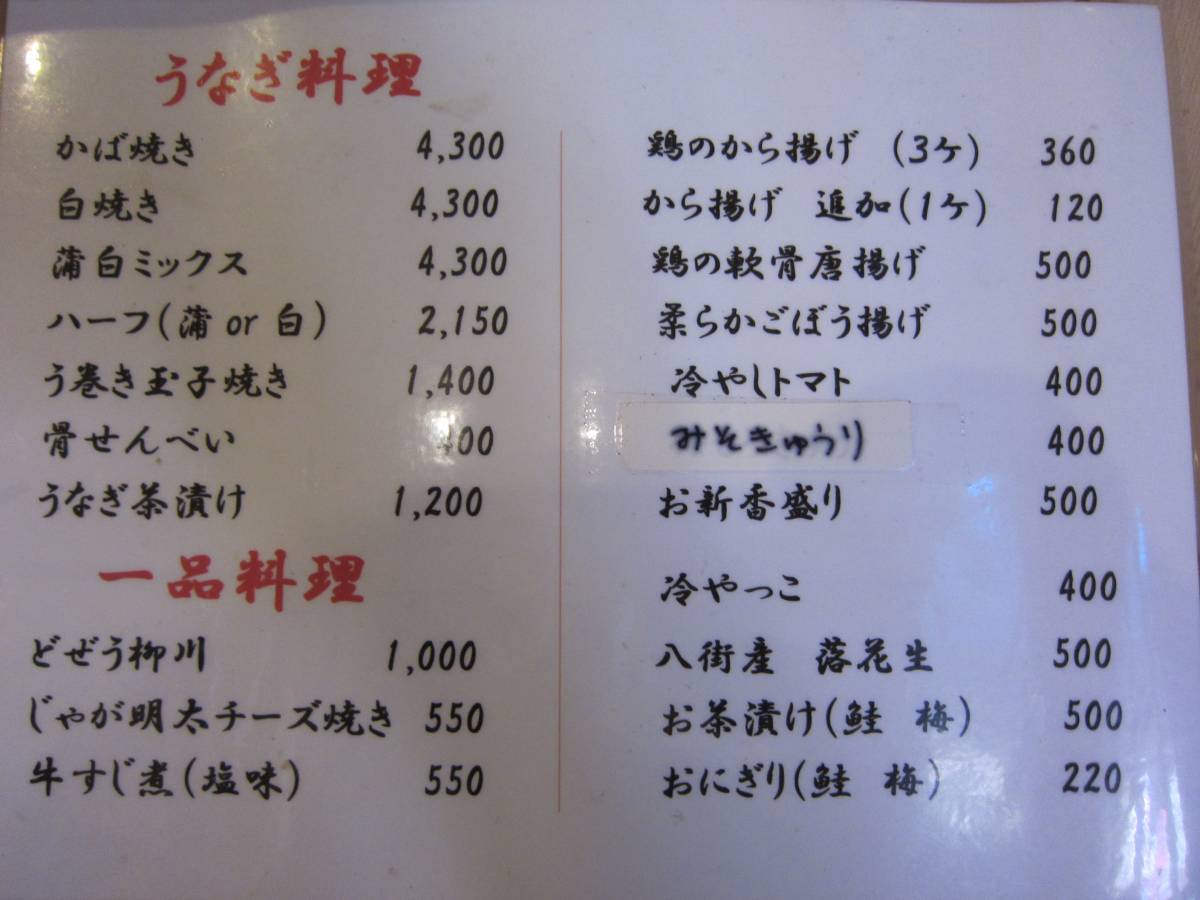 うなぎ料理
かば焼き 4,300
白焼き 4,300
蒲白ミックス 4,300
ハーフ(蒲 or 白) 2,150
う巻き玉子焼き 1,400
骨せんべい 400
うなぎ茶漬け 1,200
一品料理
どぜう柳川 1,000
じゃが明太チーズ焼き 550
牛すじ煮(塩味) 550
鶏のから揚げ (3ケ) 360
から揚げ 追加(1ケ) 120
鶏の軟骨唐揚げ 500
柔らかごぼう揚げ 500
冷やしトマト 400
みそきゅうり 400
お新香盛り 500
冷やっこ 400
八街産 落花生 500
お茶漬け(鮭 梅) 500
おにぎり(鮭 梅) 220